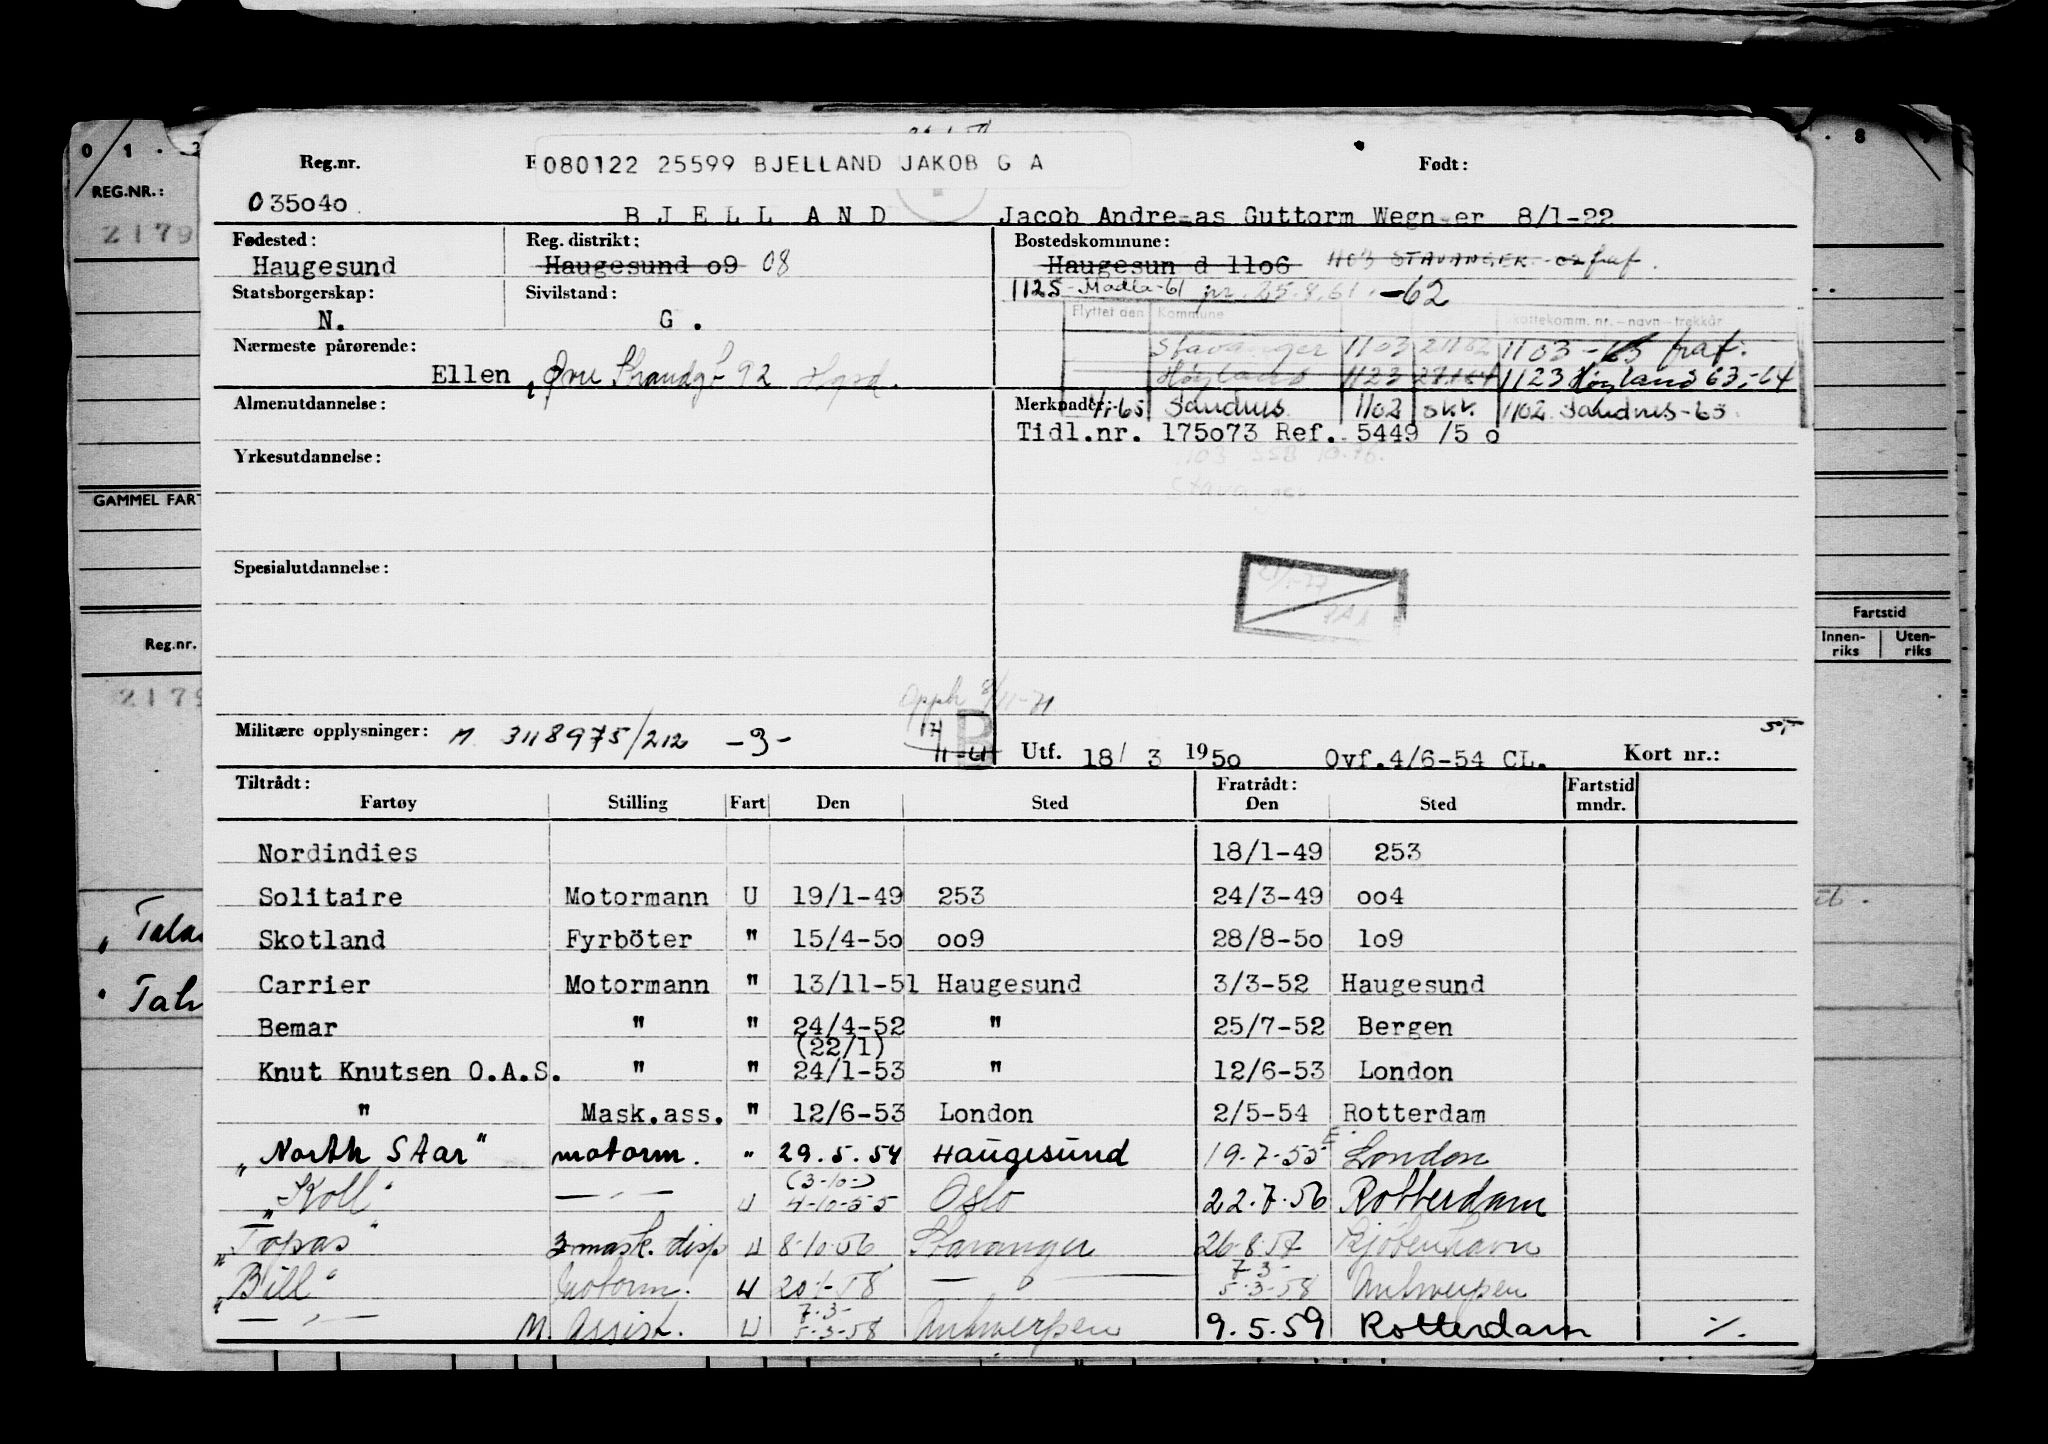 0 1 . 2
. 8
REG.NR.:
2179
GAMMEL FAR
Reg.nr.
2179
„ Tala
" Tal
Fartstid
Innen-riks Uten-riks
Reg.nr. 080122 25599 BJELLAND JAKOB G A Født:
035o4o B J E L L A N D Jacob Andreas Guttorm Wegner 8/1-22
Fødested: Reg. distrikt: Bostedskommune:
Haugesund Haugesund o9 08 Haugesund 11o6 1103 STAVANGER fraf.
Statsborgerskap: Sivilstand: 1125-Madla-61 pr. 25.8.61. -62
N. G .
Flyttet den Kommune skattekomm. nr. – navn – trekkår
Nærmeste pårørende: Stavanger 1103 1103 - 63 fraf.
Ellen , Øvre Strandgt 92 Hgsd. Høyland 1123 1123 Høyland 63,-64
Almenutdannelse: Merknader: -65 Sandnes 1102 skv. 1102 Sandnes-65
Tidl.nr. 175o73 Ref. 5449 /5 o
Yrkesutdannelse: 1103 SSB 10.76.
Stavanger
Spesialutdannelse:
Opph 9/11-71
Militære opplysninger: M. 3118975/212 -3- 17/11-61 B Utf. 18/ 3 195o Ovf.4/6-54 CL. Kort nr.: 5,-
Tiltrådt: Fratrådt: Fartstid
Fartøy Stilling Fart Den Sted Den Sted mndr.
Nordindies 18/1-49 253
Solitaire Motormann U 19/1-49 253 24/3-49 oo4
Skotland Fyrböter " 15/4-5o oo9 28/8-5o 1o9
Carrier Motormann " 13/11-51 Haugesund 3/3-52 Haugesund
Bemar " " 24/4-52 " 25/7-52 Bergen
(22/1)
Knut Knutsen O.A.S. " " 24/1-53 " 12/6-53 London
" Mask.ass. " 12/6-53 London 2/5-54 Rotterdam
„North Star" motorm. " 29.5.54 Haugesund 19.7.55 E. London
(3-10-)
„Koll" — " — U 4-10-55 Oslo 22.7.56 Rotterdam
„Topas" 3 mask. disp U 8-10-56 Stavanger 26-8-57 Kjøbenhavn
7-3-
„Bill" Motorm. U 20/1-58 — " — 5-3-58 Antwerpen
7-3-
— " — M. Assist. U 5-3-58 Antwerpen 9.5.59 Rotterdam ·/.